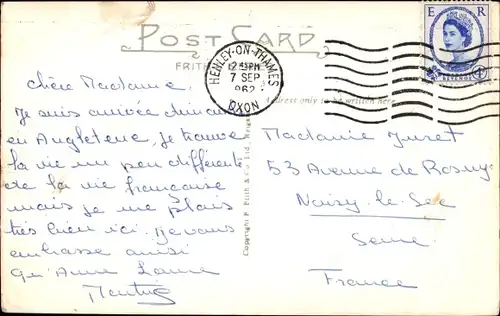 POST CARD
FRITH
HENLEY-ON-THAMES
12 45PM
7 SEP
1962
OXON
E R
POSTAGE REVENUE
Address only to be written here
Copyright F. Frith & Co. Ltd. Reigate
Chère Madame,
Je suis arrivée dimanche
en Angleterre, je trouve
la vie un peu différente
de la vie française
mais je me plais
très bien ici. Je vous
embrasse ainsi
qu'Anne
Madame
53 Avenue de Rosny
Noisy-le-Sec
Seine
France